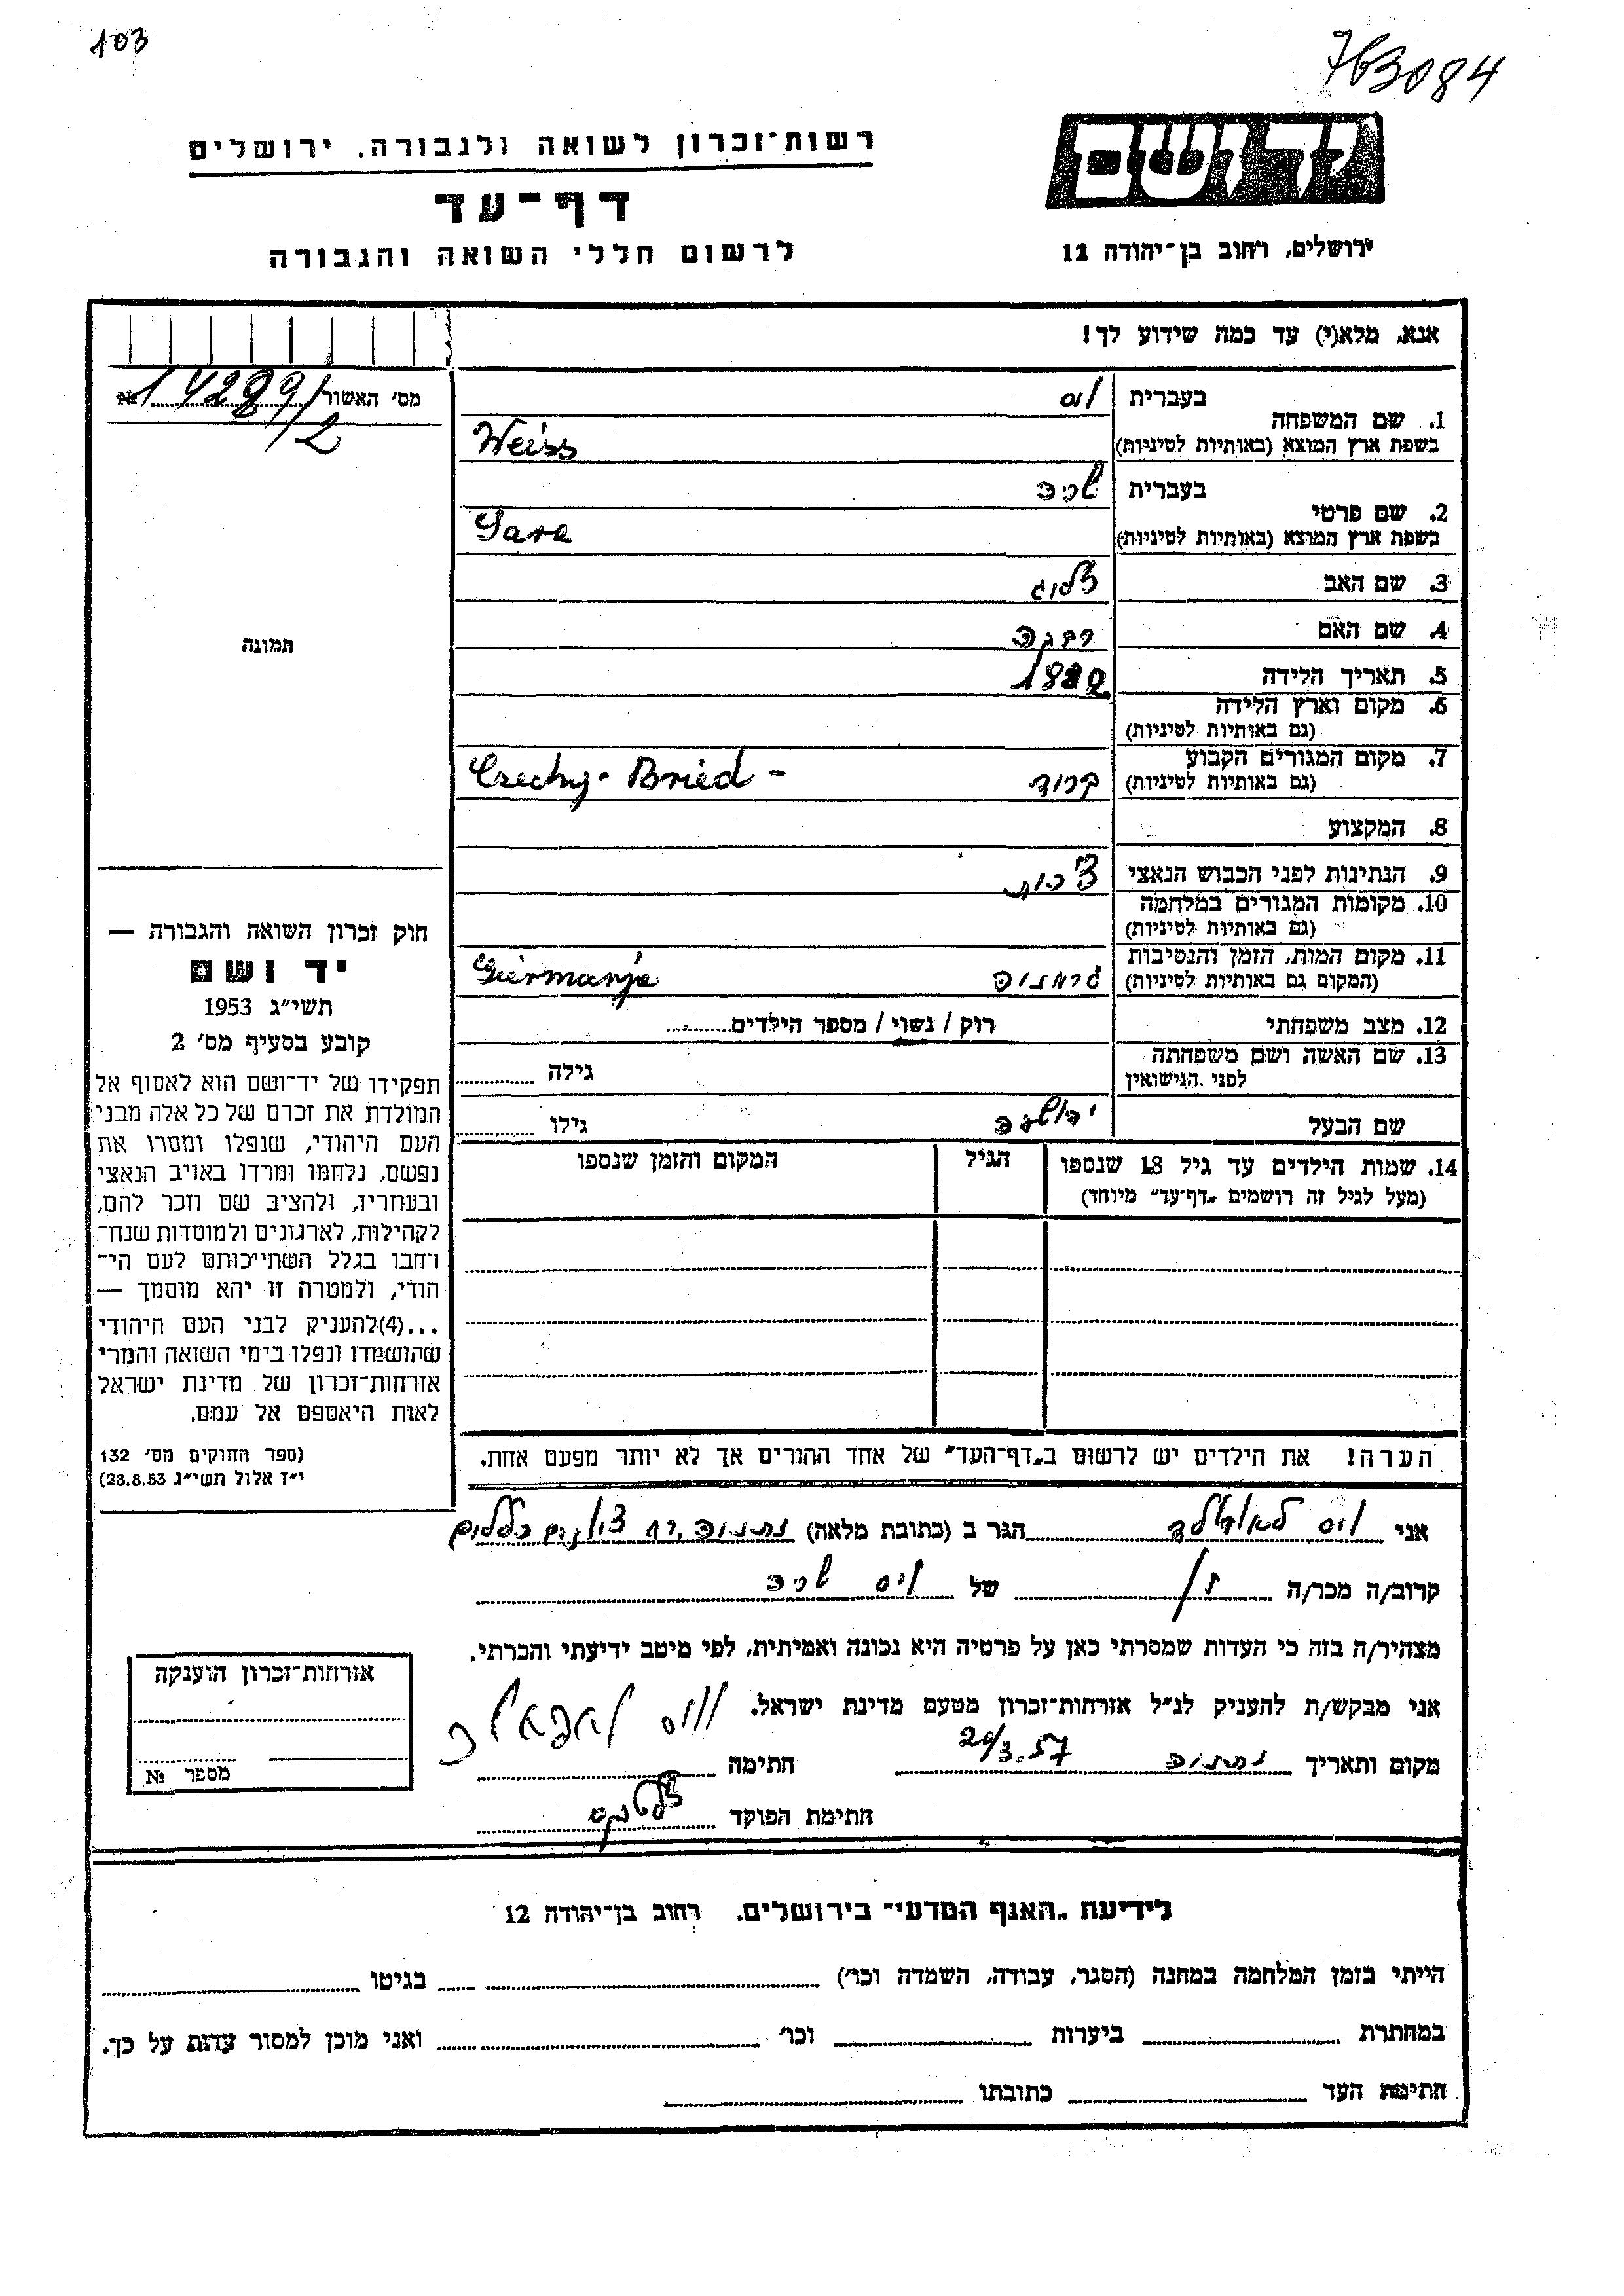 103
763084
רשות־זכרון לשואה ולגבורה, ירושלים
דף־עד
לרשום חללי השואה והגבורה
יד ושם
ירושלים, רחוב בן־יהודה 12
אנא, מלא(י) עד כמה שידוע לך!
מס׳ האשור № 14289/2
תמונה
חוק זכרון השואה והגבורה —
יד ושם
תשי״ג 1953
קובע בסעיף מס׳ 2
תפקידו של יד־ושם הוא לאסוף אל
המולדת את זכרם של כל אלה מבני
העם היהודי, שנפלו ומסרו את
נפשם, נלחמו ומרדו באויב הנאצי
ובעוזריו, ולהציב שם וזכר להם,
לקהילות, לארגונים ולמוסדות שנח־
רחבו בגלל השתייכותם לעם הי־
הודי, ולמטרה זו יהא מוסמך —
...(4)להעניק לבני העם היהודי
שהושמדו ונפלו בימי השואה והמרי
אזרחות־זכרון של מדינת ישראל
לאות היאספם אל עמם.
(ספר החוקים מס׳ 132
י״ז אלול תשי״ג 28.8.53)
בעברית ויס
1. שם המשפחה
בשפת ארץ המוצא (באותיות לטיניות) Weiss
בעברית שרה
2. שם פרטי
בשפת ארץ המוצא (באותיות לטיניות) Sara
3. שם האב
4. שם האם רבקה
5. תאריך הלידה 1882
6. מקום וארץ הלידה
(גם באותיות לטיניות)
7. מקום המגורים הקבוע
(גם באותיות לטיניות) ברוד Czechy - Bried -
8. המקצוע
9. הנתינות לפני הכבוש הנאצי צ׳כית
10. מקומות המגורים במלחמה
(גם באותיות לטיניות)
11. מקום המות, הזמן והנסיבות
(המקום גם באותיות לטיניות) גרמניה Giermanje
12. מצב משפחתי רוק / נשוי / מספר הילדים
13. שם האשה ושם משפחתה
לפני הנישואין גילה
שם הבעל גילו
14. שמות הילדים עד גיל 18 שנספו
(מעל לגיל זה רושמים „דף־עד״ מיוחד)
הגיל
המקום והזמן שנספו
הערה! את הילדים יש לרשום ב„דף־העד״ של אחד ההורים אך לא יותר מפעם אחת.
אני ויס הגר ב (כתובת מלאה) נתניה
קרוב/ה מכר/ה בן של ויס שרה
מצהיר/ה בזה כי העדות שמסרתי כאן על פרטיה היא נכונה ואמיתית, לפי מיטב ידיעתי והכרתי.
אני מבקש/ת להעניק לנ״ל אזרחות־זכרון מטעם מדינת ישראל.
מקום ותאריך נתניה 20/3.57 חתימה
חתימת הפוקד
אזרחות־זכרון הוענקה
מספר №
לידיעת „האנף המדעי״ בירושלים. רחוב בן־יהודה 12
הייתי בזמן המלחמה במחנה (הסגר, עבודה, השמדה וכו׳) בגיטו
במחתרת ביערות וכו׳ ואני מוכן למסור עדות על כך.
חתימת העד כתובתו